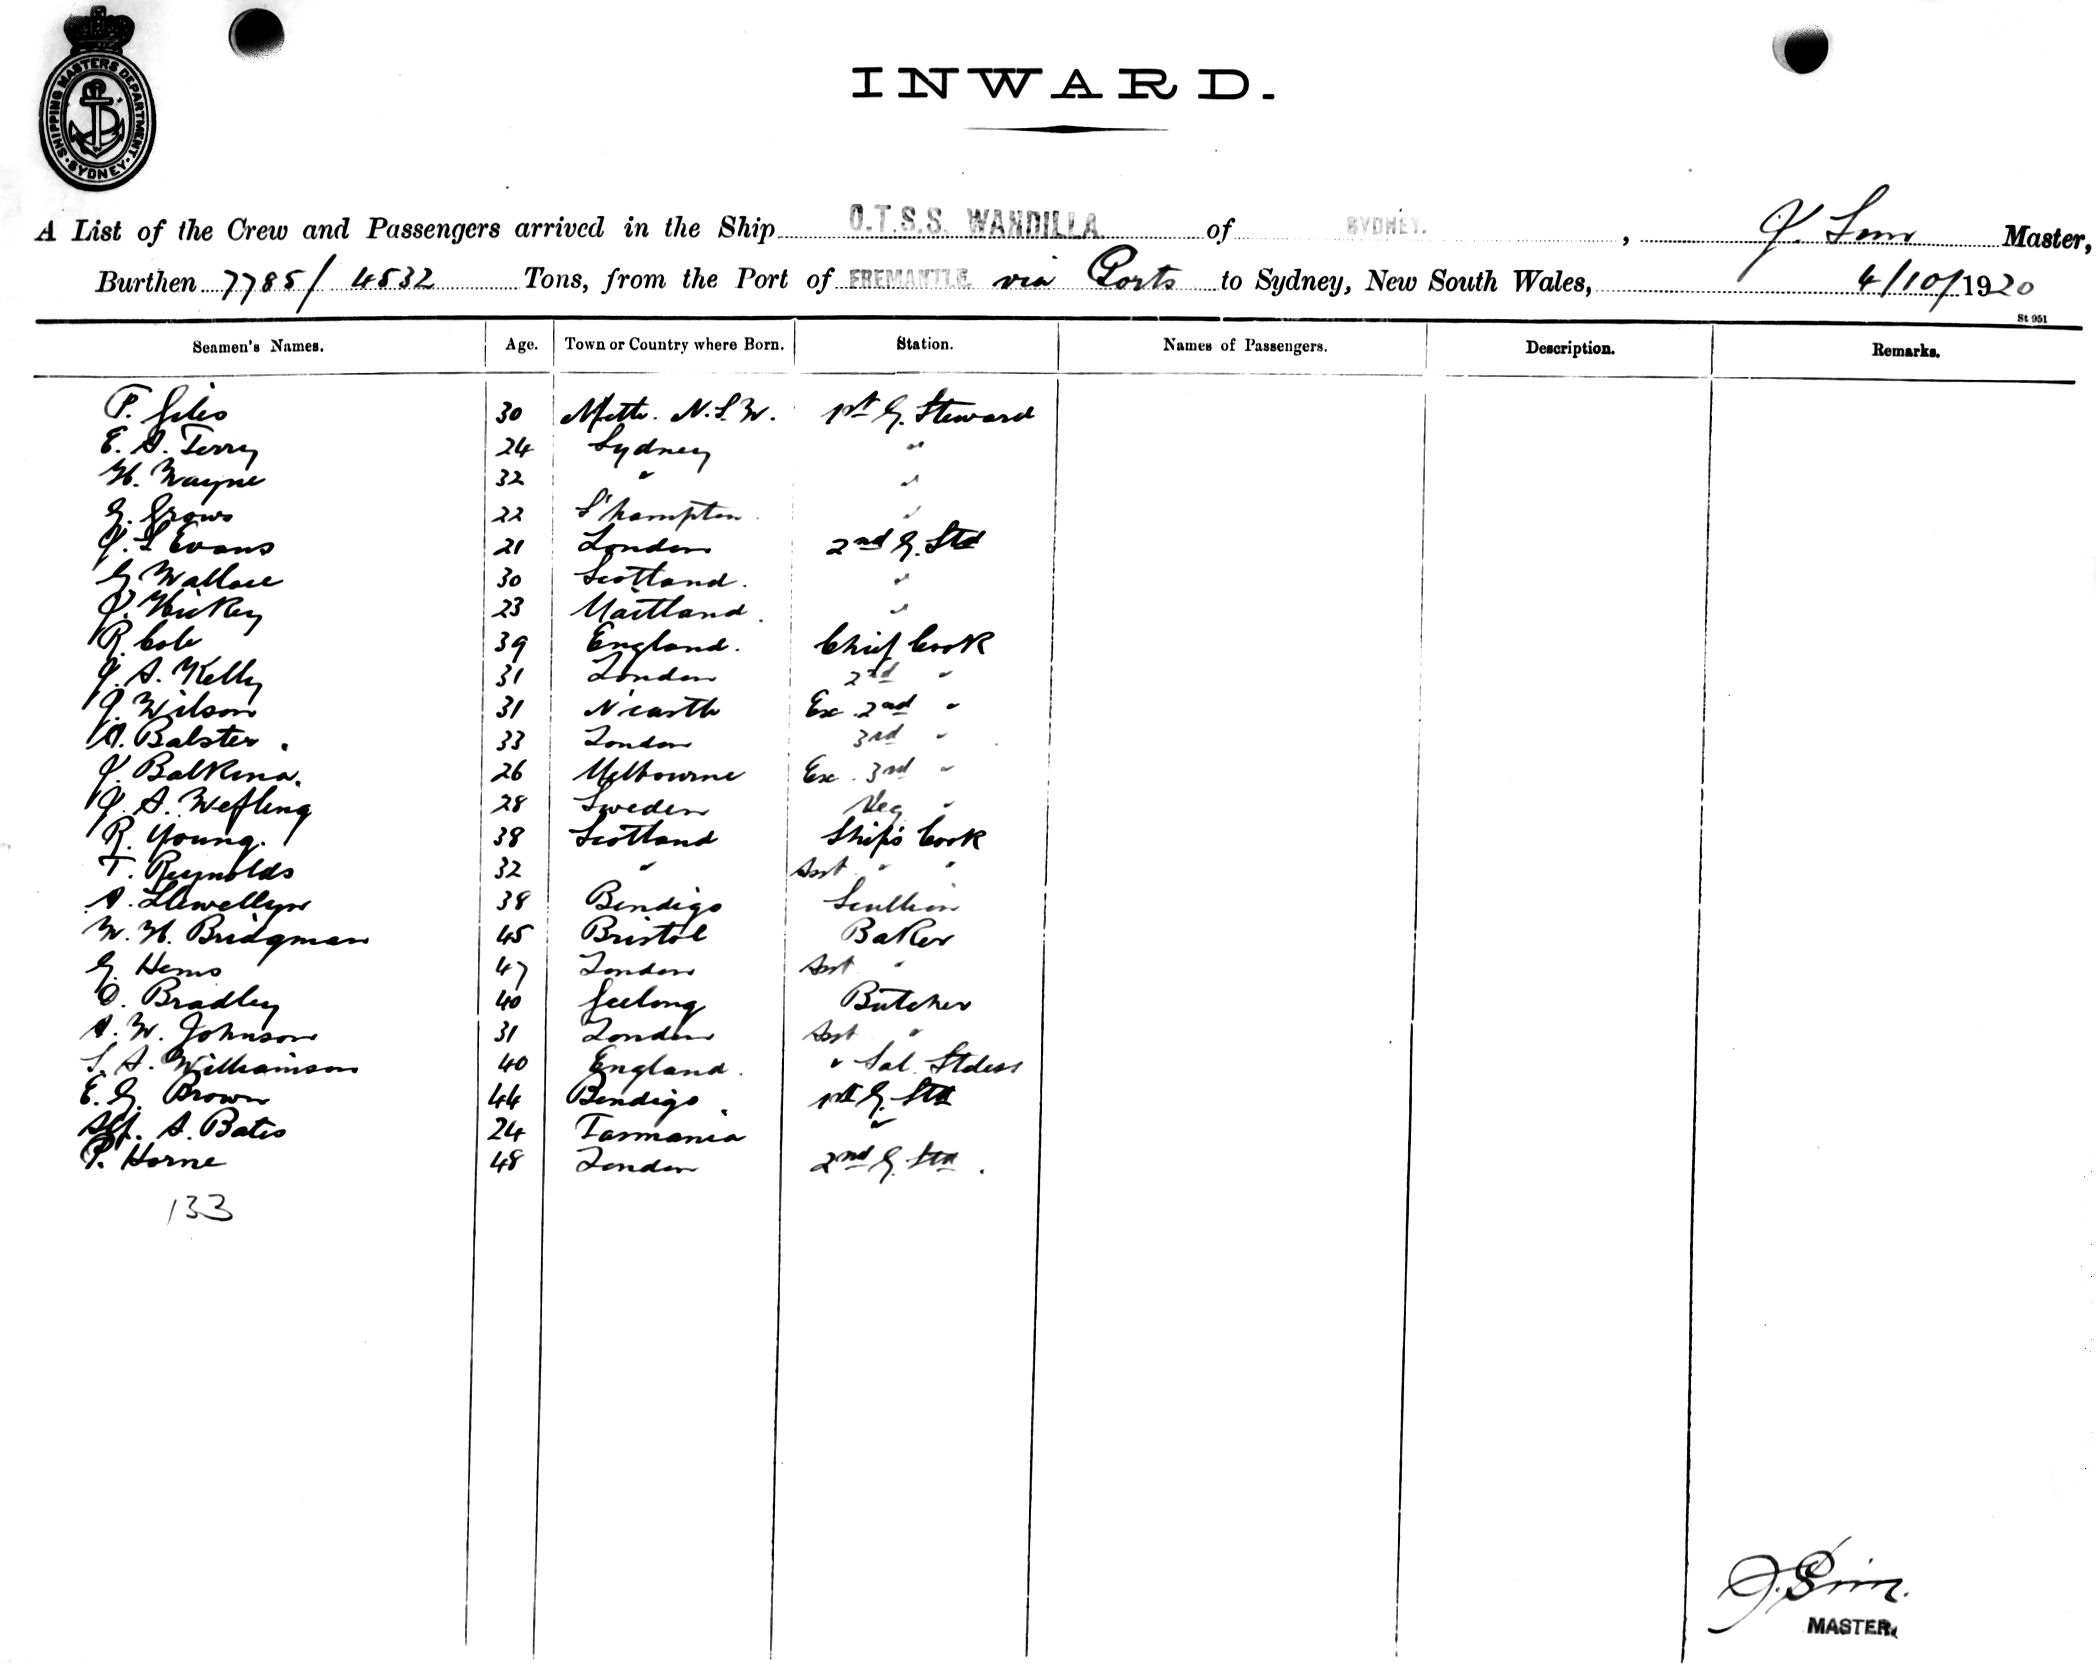 SHIPPING MASTERS DEPARTMENT SYDNEY
INWARD.
A List of the Crew and Passengers arrived in the Ship O.T.S.S. WANDILLA of SYDNEY. , J. Sim Master,
Burthen 7785/4532 Tons, from the Port of FREMANTLE. via Ports to Sydney, New South Wales, 4/10/1920
St 951
Seamen's Names. Age. Town or Country where Born. Station. Names of Passengers. Description. Remarks.
P. Giles 30 N.S.W. 1st G. Steward
E. A. Terry 24 Sydney "
H. Wayne 32 " "
G. Grows 22 S'hampton "
J. L Evans 21 London 2nd G. Std
G Wallace 30 Scotland. "
J. Hickey 23 Maitland. "
R. Cole 39 England. Chief Cook
J. A. Kelly 31 London 2nd "
J. Wilson 31 N'castle Ex 2nd "
A. Balster. 33 London 3rd "
J. Balkena. 26 Melbourne Ex. 3rd "
J. A. Wefling 28 Sweden Veg "
R. Young. 38 Scotland Ship's Cook
T. Reynolds 32 " Asst " "
A. Llewellyn 38 Bendigo Scullion
W. H. Bridgman 45 Bristol Baker
G. Hems 47 London Asst "
O. Bradley 40 Geelong Butcher
A. W. Johnson 31 London Asst "
S. A. Williamson 40 England. " Sal. Stdess
E. G. Brown 44 Bendigo. 1st G. Std
Alf. A. Bates 24 Tasmania "
P. Horne 48 London 2nd G. Std.
133
J. Sim.
MASTER.